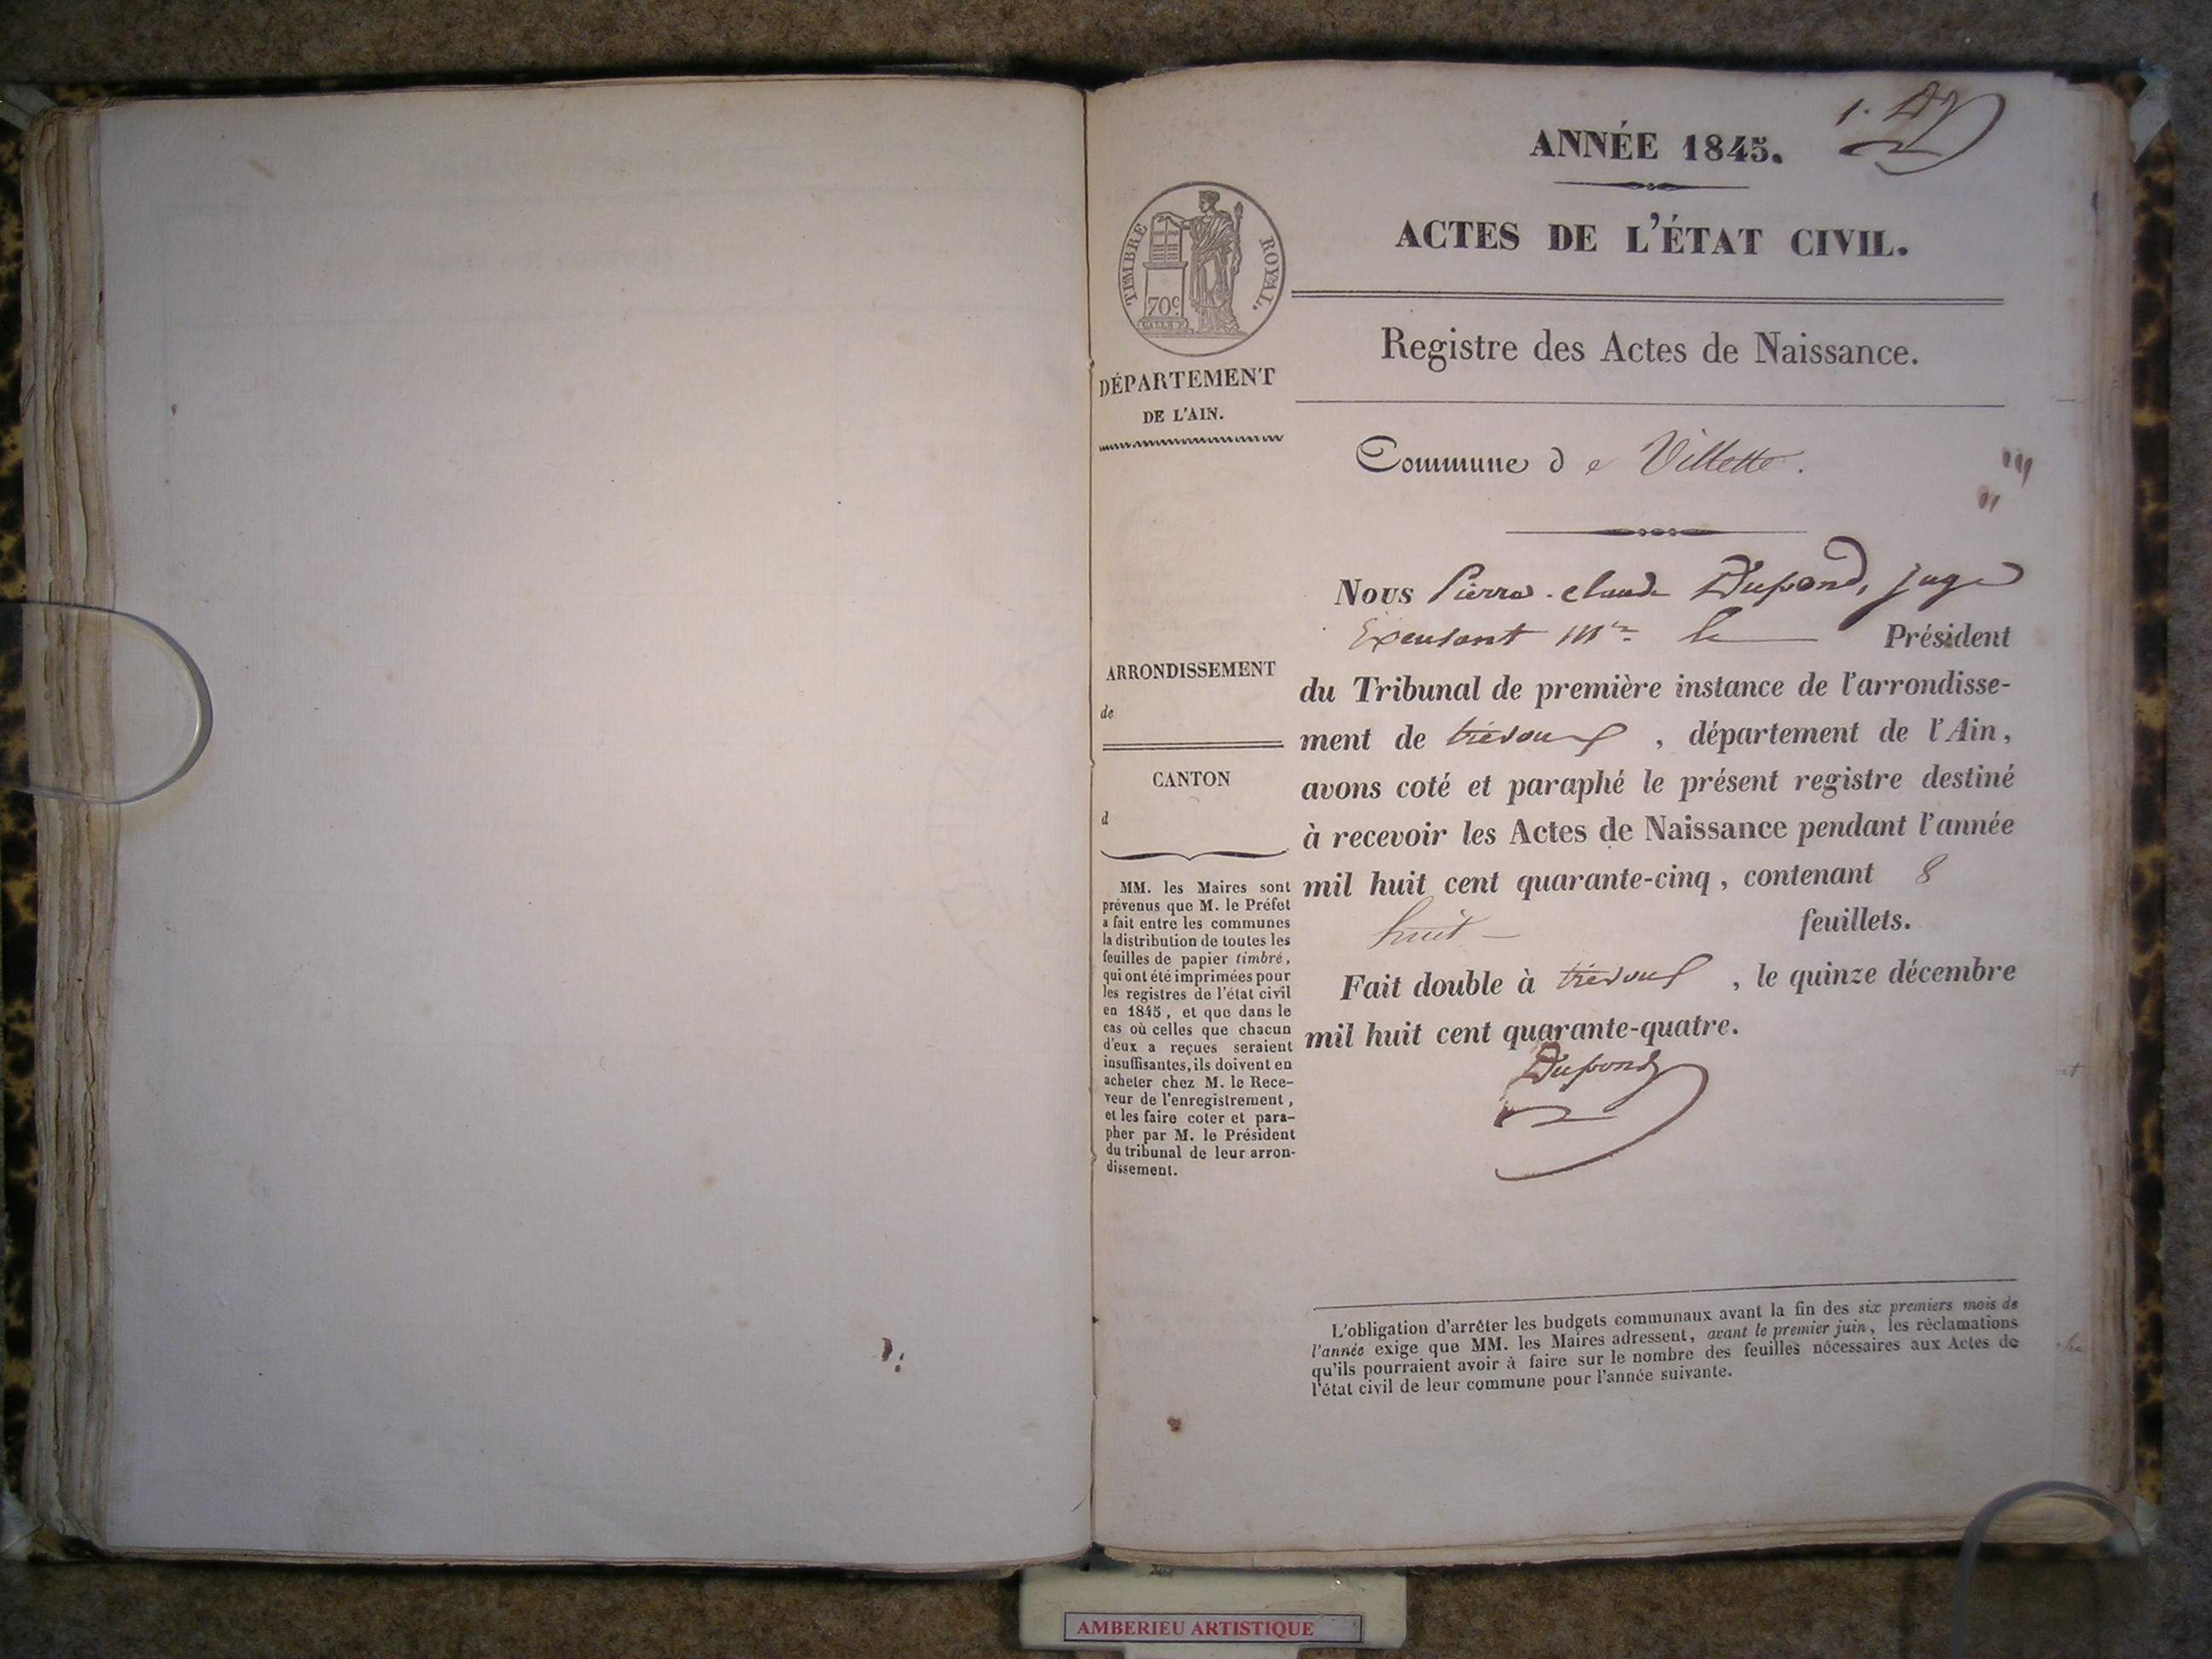 1.
ANNÉE 1845.
ACTES DE L'ÉTAT CIVIL.
TIMBRE ROYAL.
70c
DÉPARTEMENT
DE L'AIN.
Registre des Actes de Naissance.
Commune de Villette.
Nous Pierre-Claude Dupond, juge
Excusant Mr le Président
du Tribunal de première instance de l'arrondisse-
ment de trévoux, département de l'Ain,
avons coté et paraphé le présent registre destiné
à recevoir les Actes de Naissance pendant l'année
mil huit cent quarante-cinq, contenant 8
huit feuillets.
Fait double à trévoux, le quinze décembre
mil huit cent quarante-quatre.
Dupond
ARRONDISSEMENT
de
CANTON
d
MM. les Maires sont
prévenus que M. le Préfet
a fait entre les communes
la distribution de toutes les
feuilles de papier timbré,
qui ont été imprimées pour
les registres de l'état civil
en 1845, et que dans le
cas où celles que chacun
d'eux a reçues seraient
insuffisantes, ils doivent en
acheter chez M. le Rece-
veur de l'enregistrement,
et les faire coter et para-
pher par M. le Président
du tribunal de leur arron-
dissement.
L'obligation d'arrêter les budgets communaux avant la fin des six premiers mois de
l'année exige que MM. les Maires adressent, avant le premier juin, les réclamations
qu'ils pourraient avoir à faire sur le nombre des feuilles nécessaires aux Actes de
l'état civil de leur commune pour l'année suivante.
AMBERIEU ARTISTIQUE